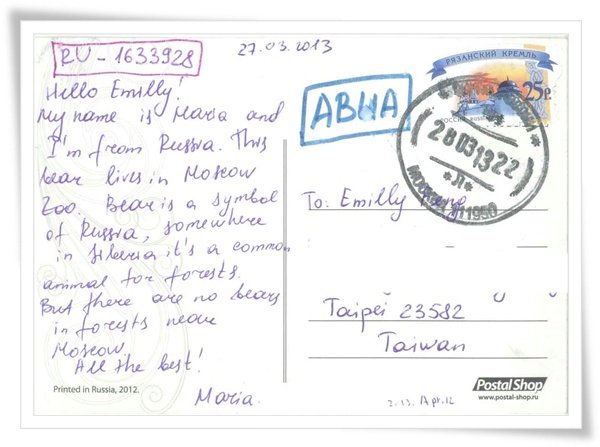 RU - 1633928
27.03.2013
Hello Emilly!
My name is Maria and
I'm from Russia. This
bear lives in Moscow
Zoo. Bear is a symbol
of Russia, somewhere
in Siberia it's a common
animal for forests.
But there are no bears
in forests near
Moscow.
All the best!
Maria.
Printed in Russia, 2012.
АВИА
РЯЗАНСКИЙ КРЕМЛЬ
25р
РОССИЯ RUSSIA
28031322
*Л*
МОСКВА 111950
To: Emilly
Taipei 23582
Taiwan
Postal Shop
www.postal-shop.ru